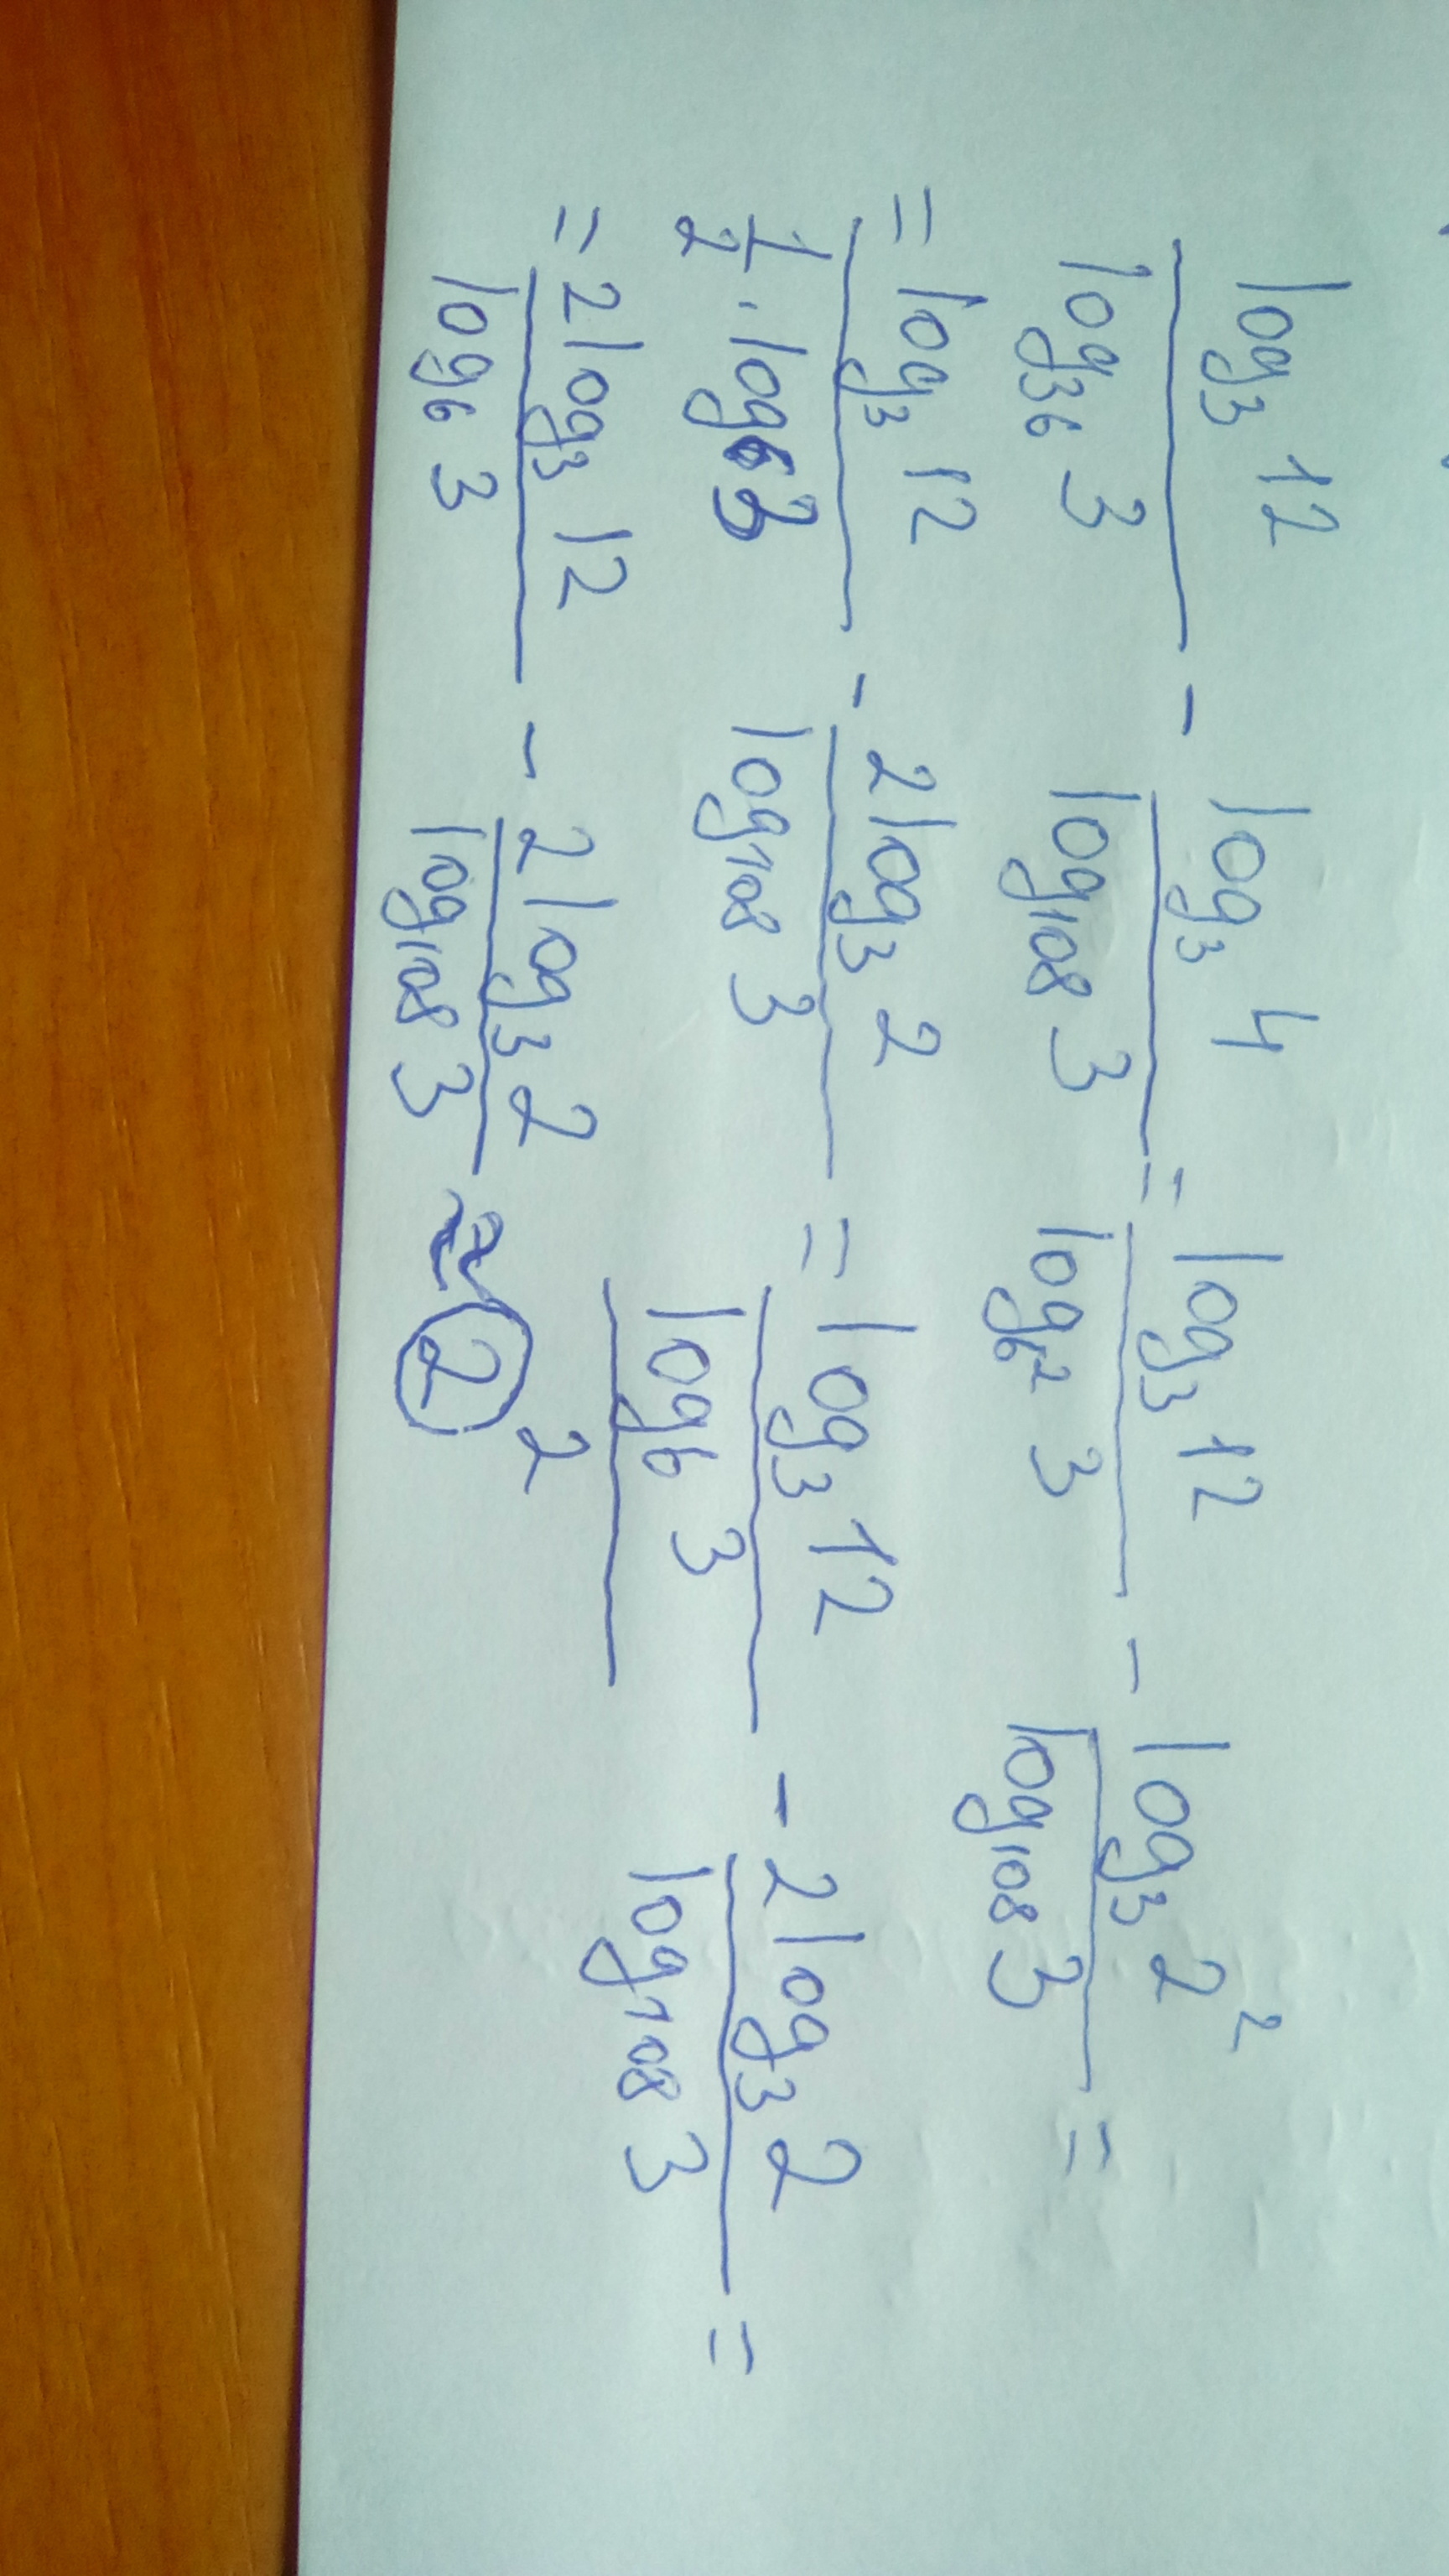 log₃ 12 / log₃₆ 3 - log₃ 4 / log₁₀₈ 3 = log₃ 12 / log₆² 3 - log₃ 2² / log₁₀₈ 3 =
= log₃ 12 / 1/2 · log₆ 3 - 2 log₃ 2 / log₁₀₈ 3 = log₃ 12 / log₆ 3 / 2 - 2 log₃ 2 / log₁₀₈ 3 =
= 2 log₃ 12 / log₆ 3 - 2 log₃ 2 / log₁₀₈ 3 ≈ 2